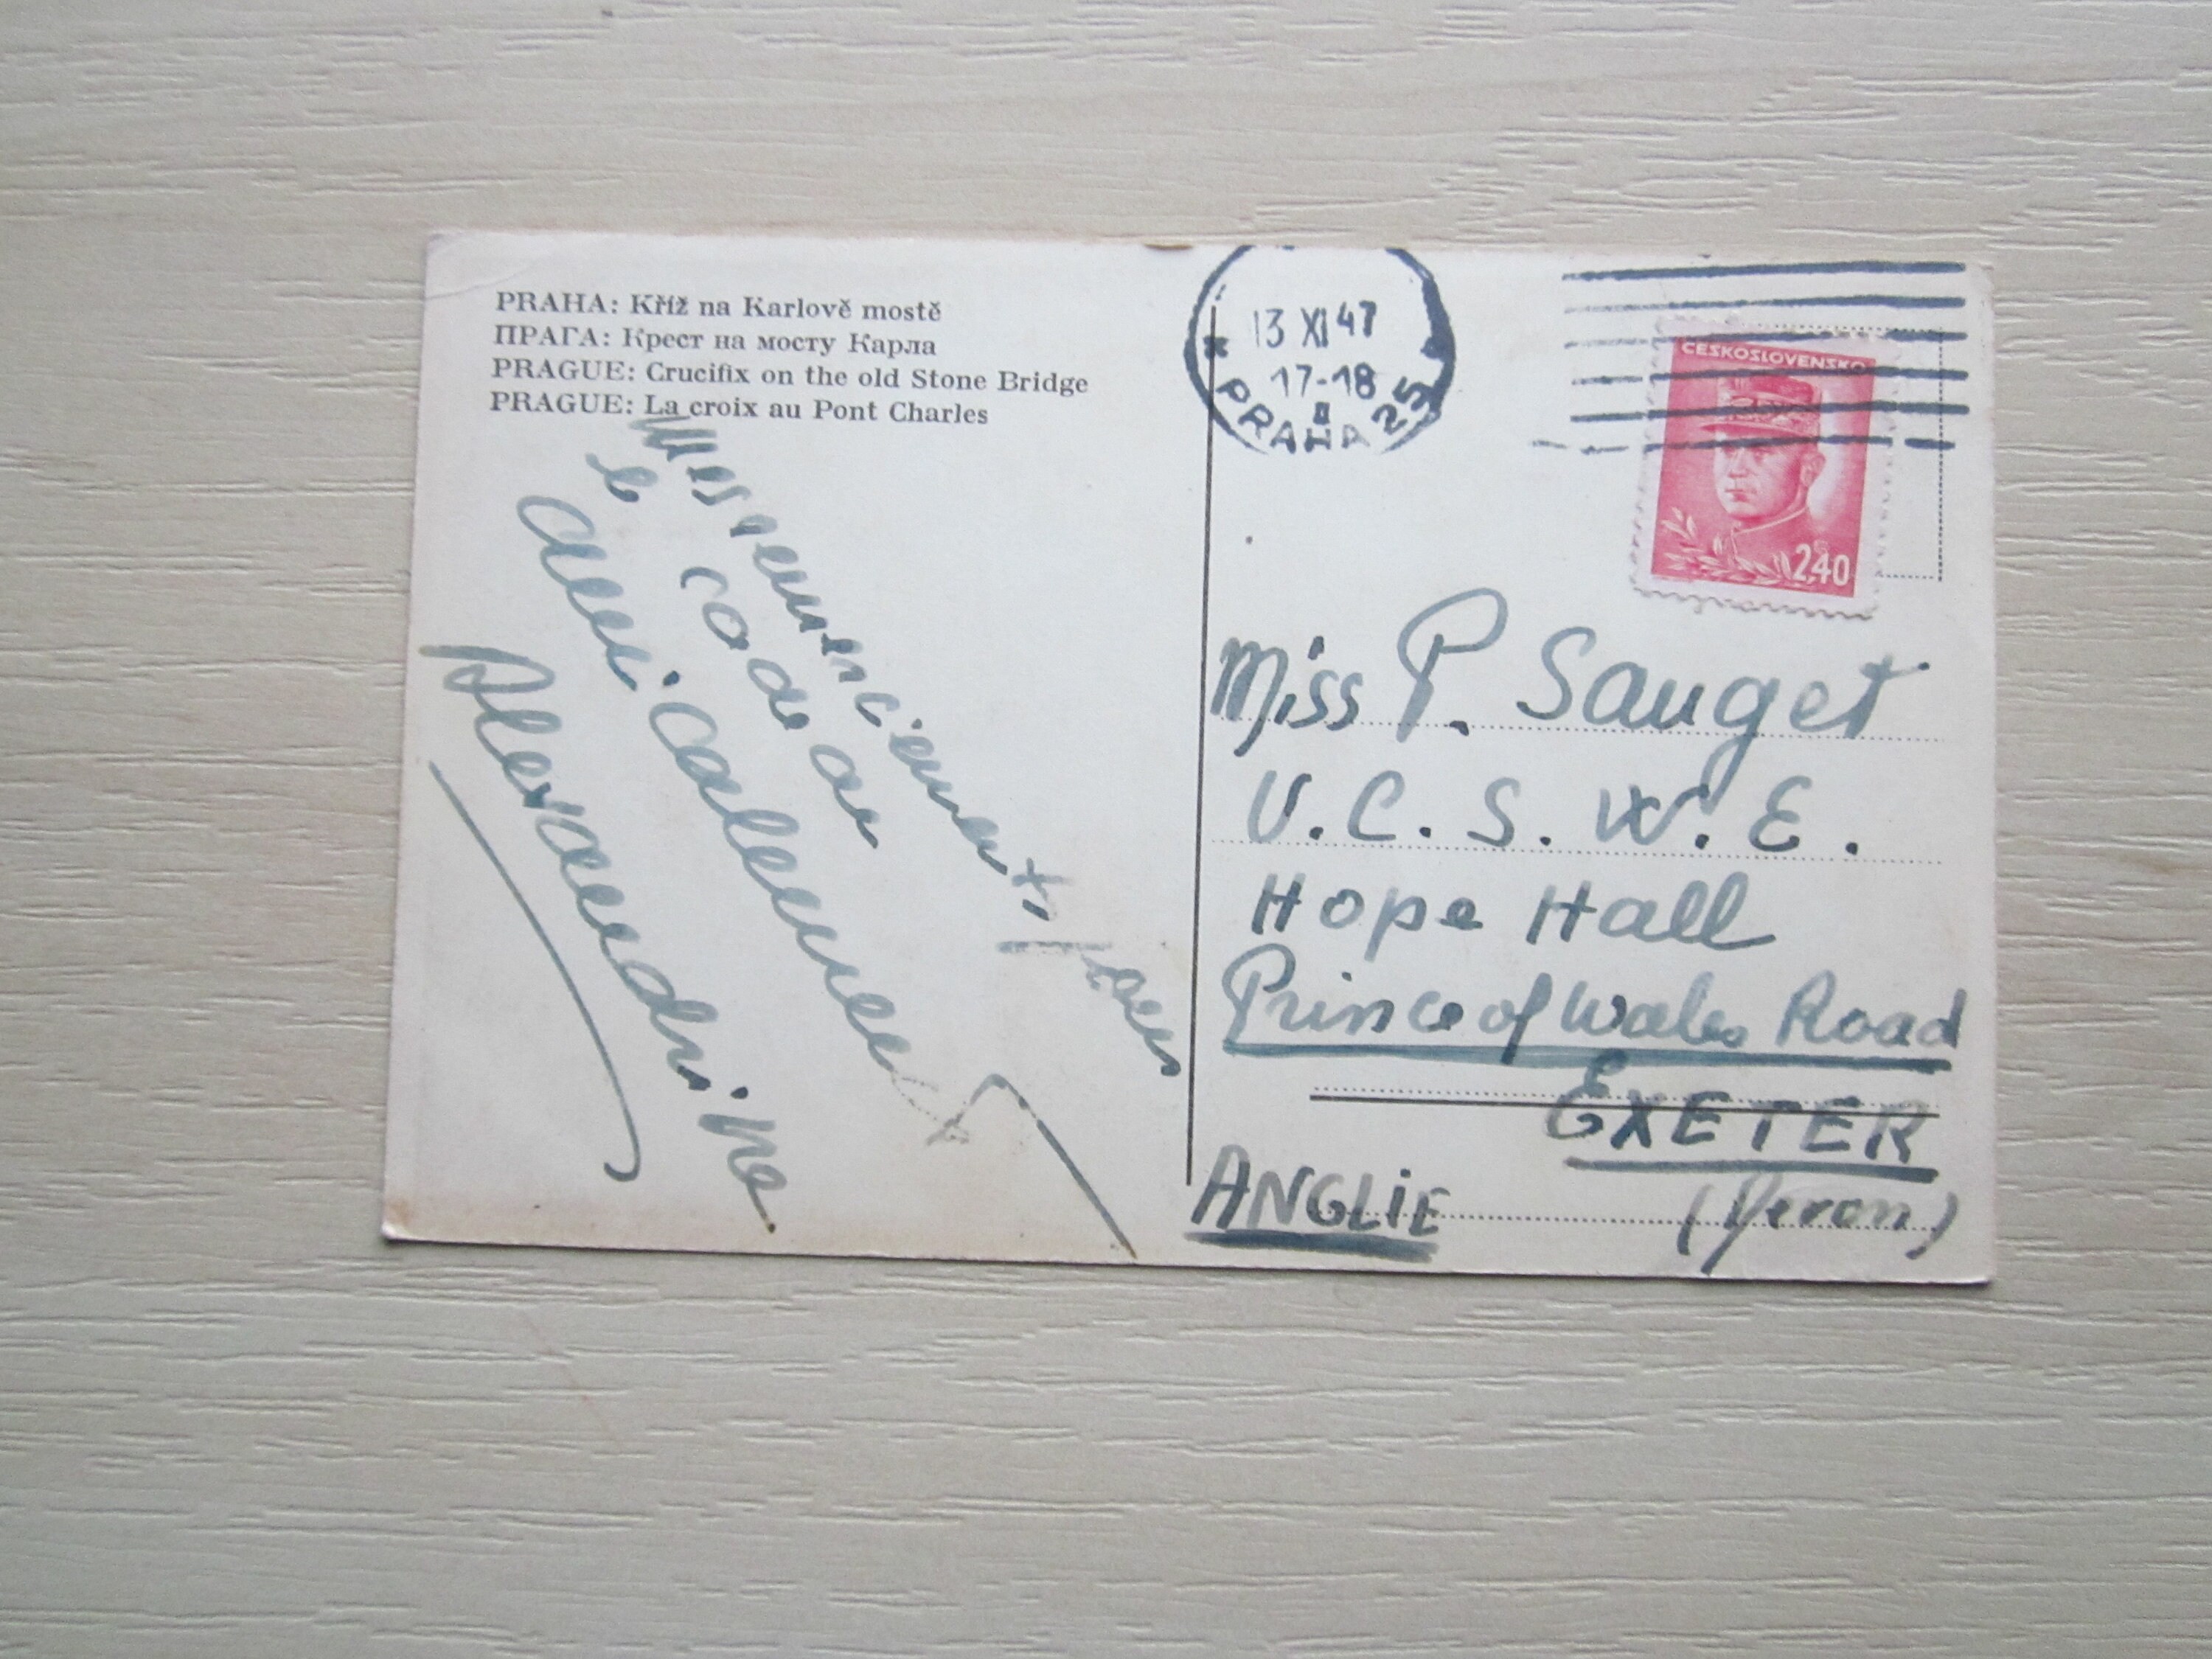 PRAHA: Kříž na Karlově mostě
ПРАГА: Крест на мосту Карла
PRAGUE: Crucifix on the old Stone Bridge
PRAGUE: La croix au Pont Charles
Mes remerciements pour
le cadeau
amicalement
Alexandrine
13 XI 47
17-18
II
PRAHA 25
ČESKOSLOVENSKO
2,40
Miss P. Sauget
U. C. S. W. E.
Hope Hall
Prince of Wales Road
EXETER
ANGLIE (Devon)